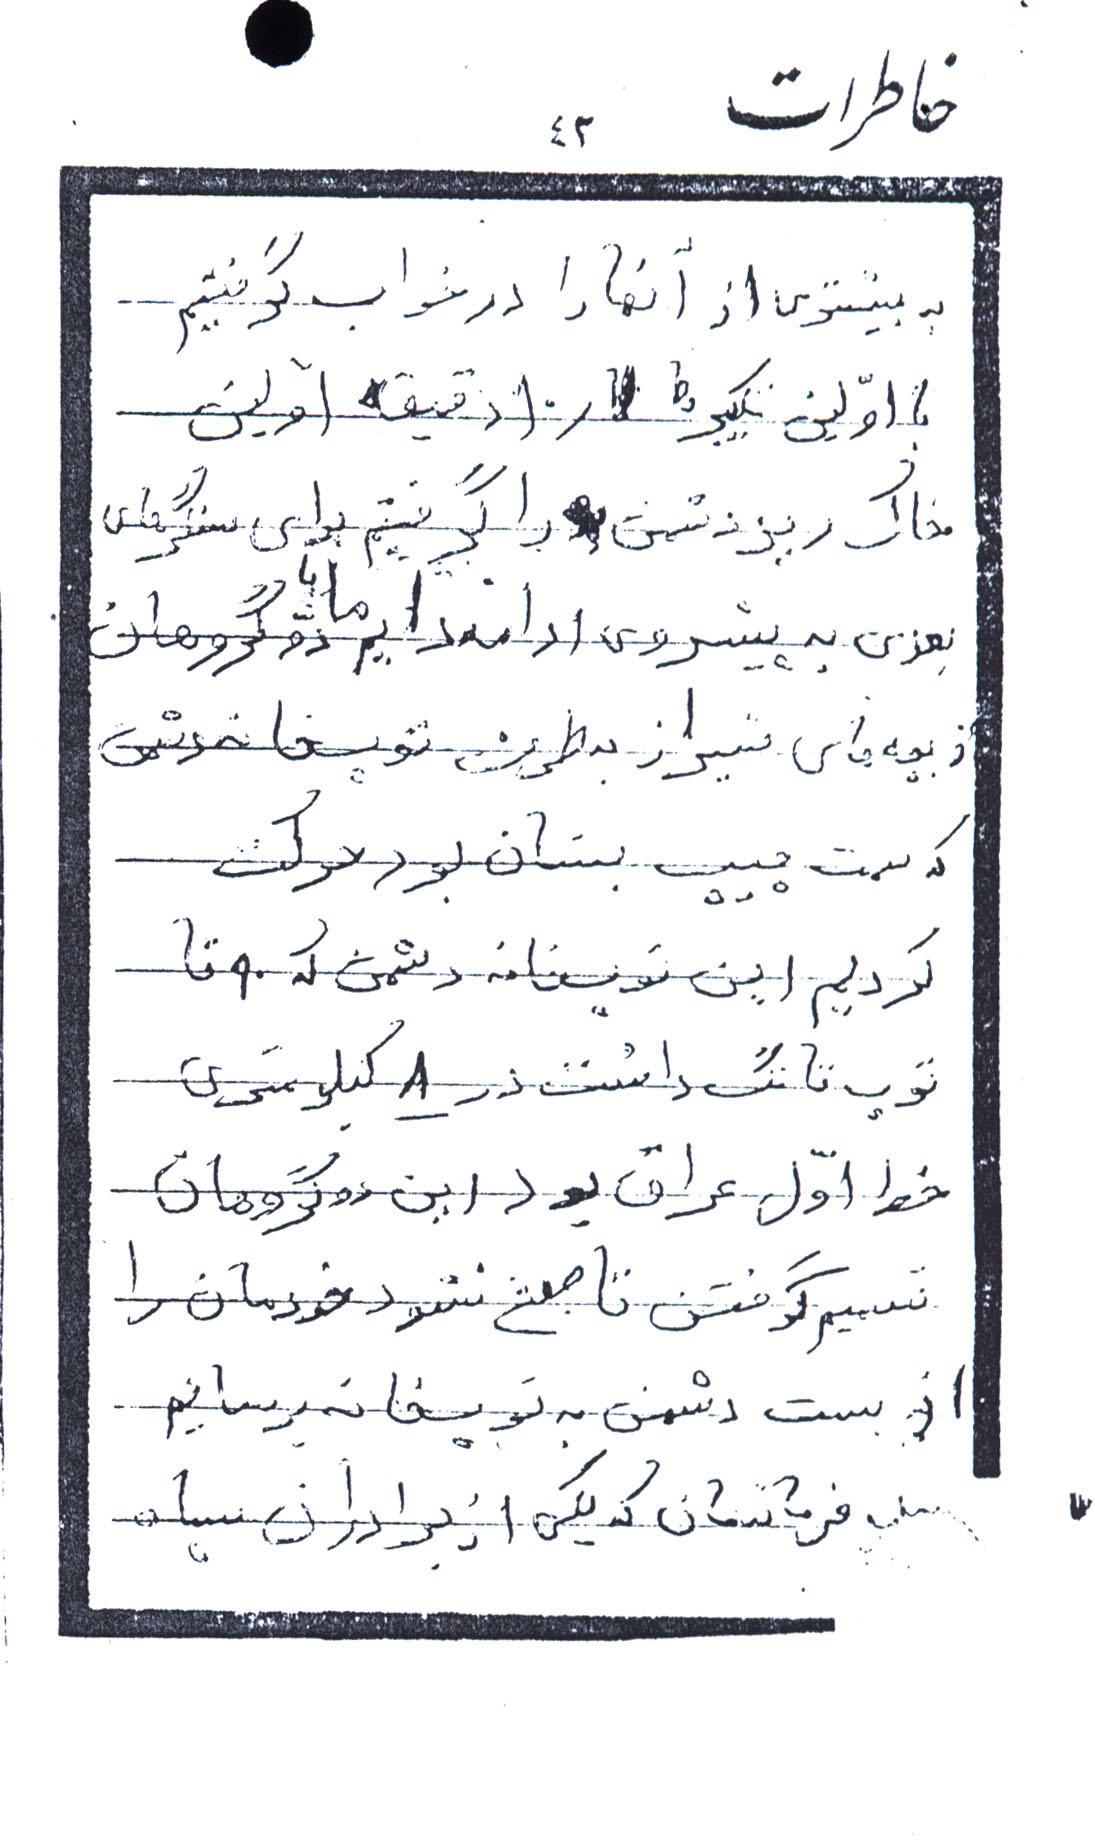 خاطرات
٤٣
به بیشتری از آنها را در خواب گرفتیم
با اوّلین تکبیر ما ۱۰ دقیقه اوّلین
خاک ریز دشمن را گرفتیم برای سنگرهای
بعدی به پیشروی ادامه دادیم ما با دو گروهان
از بچه های شیراز به طرف توپ خانه دشمن
که سمت چپ بستان بود حرکت
کردیم این توپخانه دشمن که ۹۰ تا
توپ تانک داشت در ۸ کیلومتری
خط اوّل عراق بود این دو گروهان
تصمیم گرفتن تا صبح نشود خودمان را
از پست دشمن به توپخانه برسانیم
فرماندمان که یکی از برادران سپاه